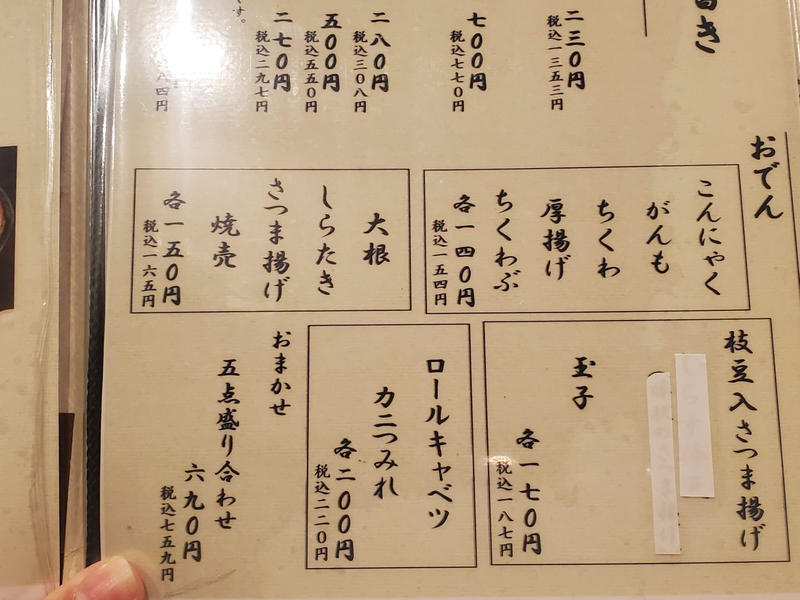 き
二三〇円
税込二五三円
七〇〇円
税込七七〇円
二八〇円
税込三〇八円
五〇〇円
税込五五〇円
二七〇円
税込二九七円
す。
おでん
こんにゃく
がんも
ちくわ
厚揚げ
ちくわぶ
各一四〇円
税込一五四円
大根
しらたき
さつま揚げ
焼売
各一五〇円
税込一六五円
枝豆入さつま揚げ
玉子
各一七〇円
税込一八七円
ロールキャベツ
カニつみれ
各二〇〇円
税込二二〇円
おまかせ
五点盛り合わせ
六九〇円
税込七五九円